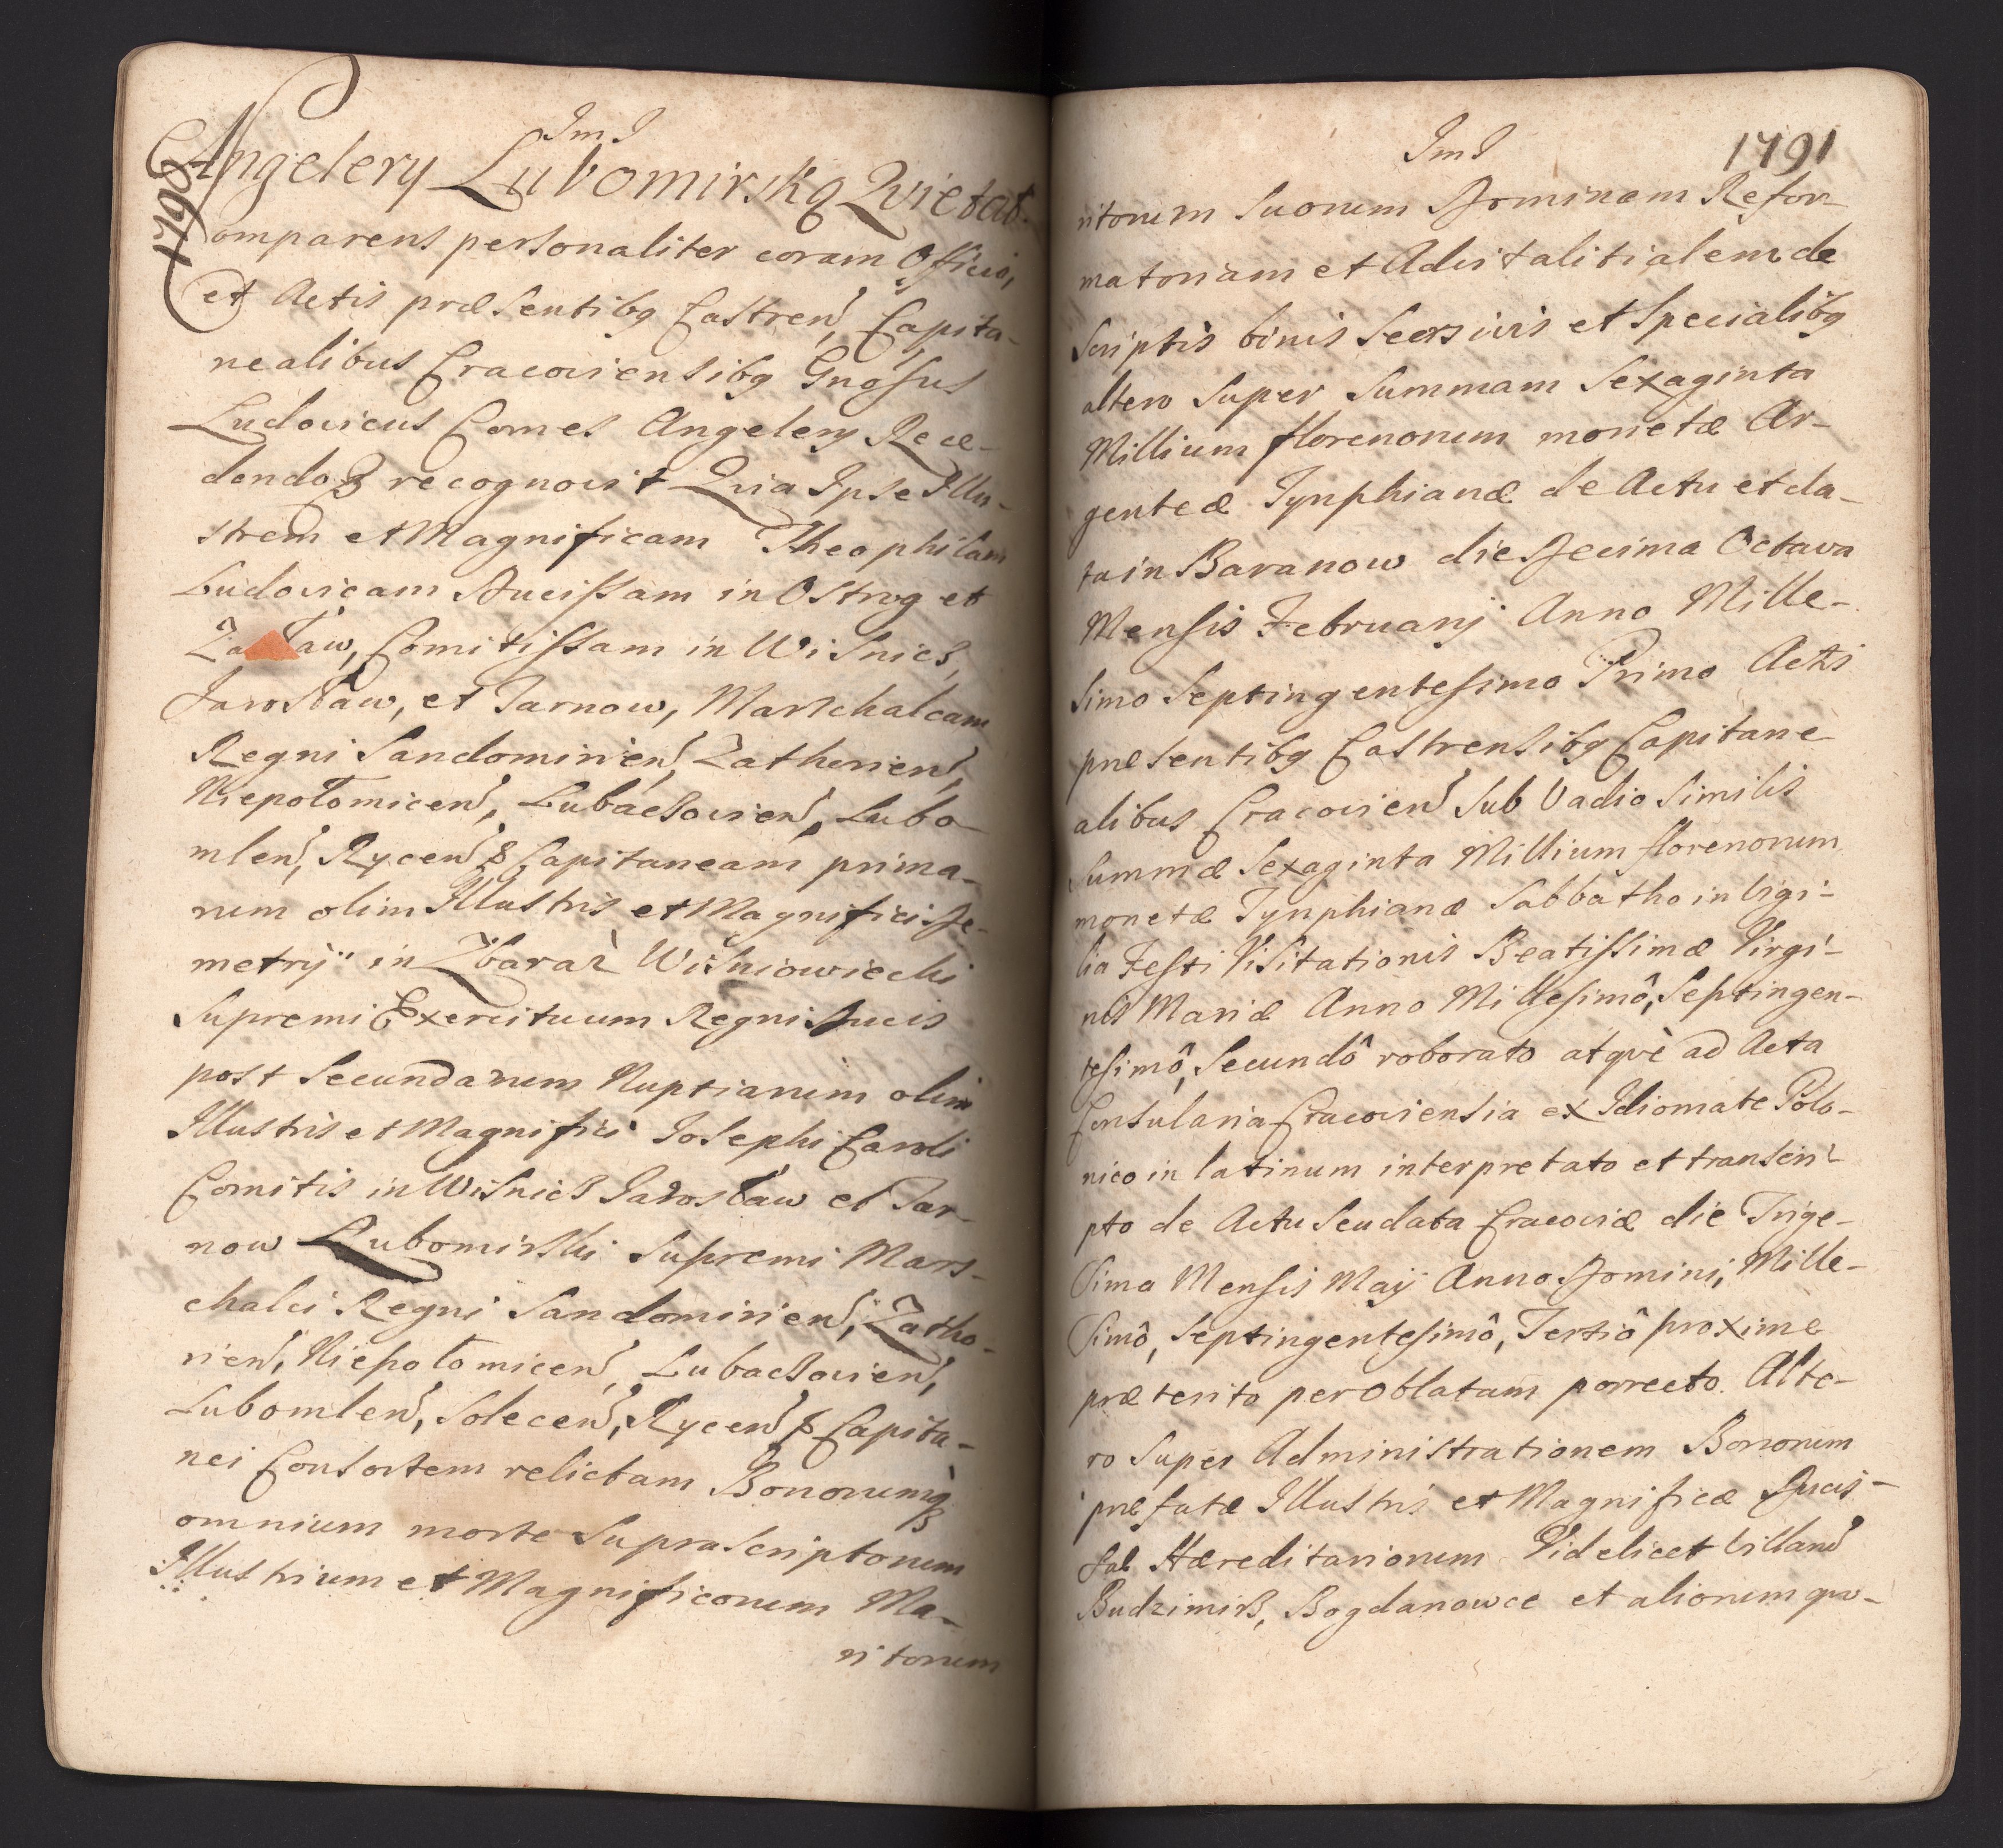 ImI
1790
Angelery Lubomirską Qvietat.
Comparens personaliter coram Officio,
et Actis præsentibq Castren, Capita-
nealibus Cracoviensibq Gnosus
Ludovicus Comes Angelery Rece-
dendo &c recognovit Qvia Ipse Illu-
strem et Magnificam Theophilam
Ludovicam Ducissam in Ostrog et
Zasław, Comitissam in Wisnicz,
Jarosław, et Tarnow, Marschalcam
Regni Sandomirien, Zathorien,
Niepołomicen, Lubaczovien, Lubo-
mlen, Rycen & Capitaneam prima-
rum olim Illustris et Magnifici De-
metrÿ in Zbaraż Wiśniowiecki
Supremi Exercituum Regni Ducis
post Secundarum Nuptiarum olim
Illustris et Magnifici Josephi Caroli
Comitis in Wisnicz Jarosław et Tar-
now Lubomirski Supremi Mars-
chalci Regni Sandomirien, Zatho-
rien, Niepołomicen, Lubaczovien,
Lubomlen, Solecen, Rycen & Capita-
nei Consortem relictam Bonorumq
omnium morte Suprascriptorum
Illustrium et Magnificorum Ma-
ritorum
ImI
1791
ritorum Suorum Dominam Refor-
matoriam et Advitalitialem de
Scriptis binis Seorsivis et Specialibq
altero Super Summam Sexaginta
Millium florenorum monetæ Ar-
genteæ Tynphianæ de Actu et da-
ta in Baranow die Decima Octava
Mensis Februarij Anno Mille-
simo Septingentesimo Primo Actis
præsentibq Castrensibq Capitane-
alibus Cracovien Sub Vadio Similis
Summæ Sexaginta Millium florenorum
monetæ Tynphianæ Sabbatho in Vigi-
lia Festi Visitationis Beatissimæ Virgi-
nis Mariæ Anno Millesimô, Septingen-
tesimô, Secundô roborato atqvè ad Acta
Consularia Cracoviensia ex Idiomate Polo-
nico in latinum interpretato et transcri-
pto de Actu Seu data Cracoviæ die Trige-
Sima Mensis Maÿ Anno Domini, Mille-
Simô, Septingentesimô, Tertiô proxime
præterito per Oblatam porrecto. Alte-
ro Super Administrationem Bonorum
præfatæ Illustris et Magnificæ Ducis-
sæ Hæreditariorum Videlicet Villarũ
Budzimirz, Bogdanowce et aliorum qvo-